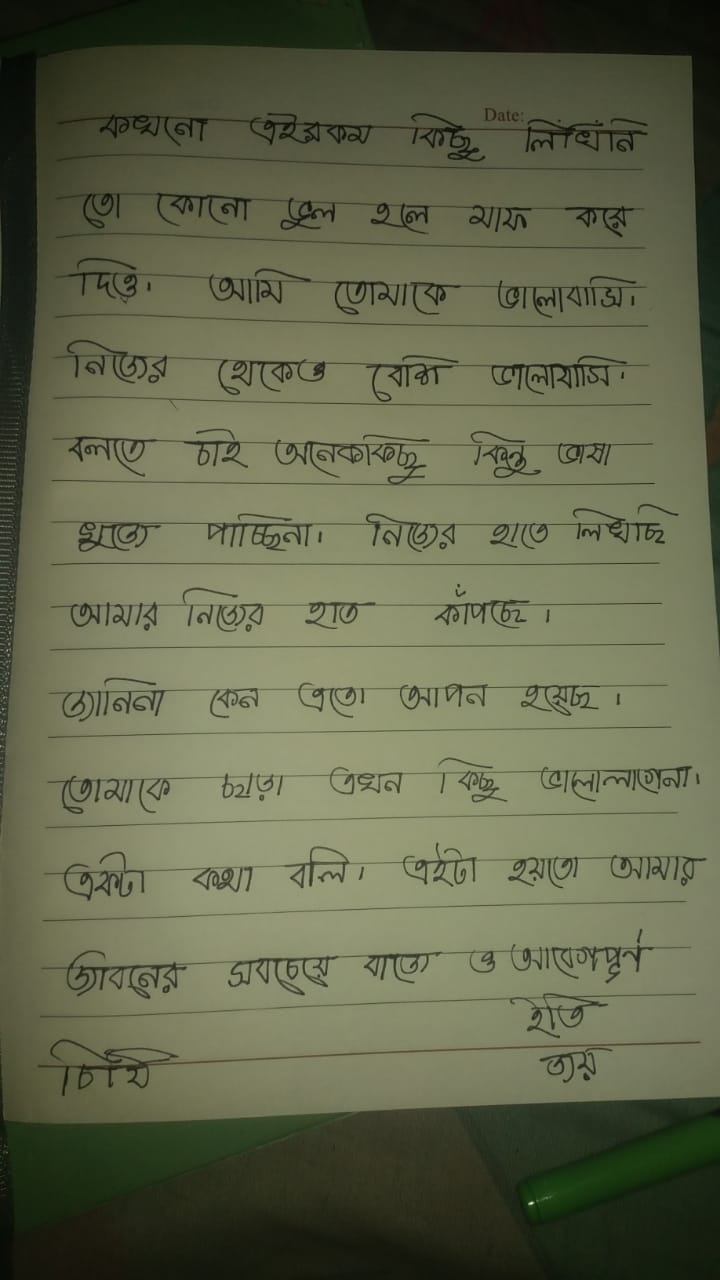 Date:
কখনো এইরকম কিছু লিখিনি
তো কোনো ভুল হলে মাফ করে
দিও। আমি তোমাকে ভালোবাসি।
নিজের থেকেও বেশি ভালোবাসি।
বলতে চাই অনেককিছু কিন্তু ভাষা
খুজে পাচ্ছিনা। নিজের হাতে লিখছি
আমার নিজের হাত কাঁপছে।
জানিনা কেন এতো আপন হয়েছ।
তোমাকে ছাড়া এখন কিছু ভালোলাগেনা।
একটা কথা বলি। এইটা হয়তো আমার
জীবনের সবচেয়ে বাজে ও আবেগপূর্ণ
ইতি
চিঠি জয়